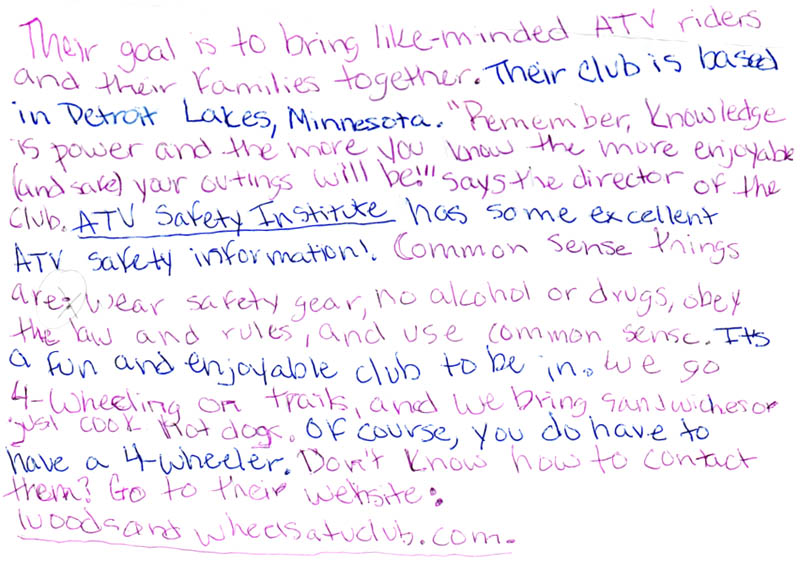 Their goal is to bring like-minded ATV riders
and their families together. Their club is based
in Detroit Lakes, Minnesota. "Remember, knowledge
is power and the more you know the more enjoyable
(and safe) your outings will be!" says the director of the
club. ATV Safety Institute has some excellent
ATV safety information!. Common sense things
are: wear safety gear, no alcohol or drugs, obey
the law and rules, and use common sense. Its
a fun and enjoyable club to be in. We go
4-wheeling on trails, and we bring sandwiches or
just cook hot dogs. Of course, you do have to
have a 4-wheeler. Don't know how to contact
them? Go to their website:
woodsandwheelsatvclub.com.